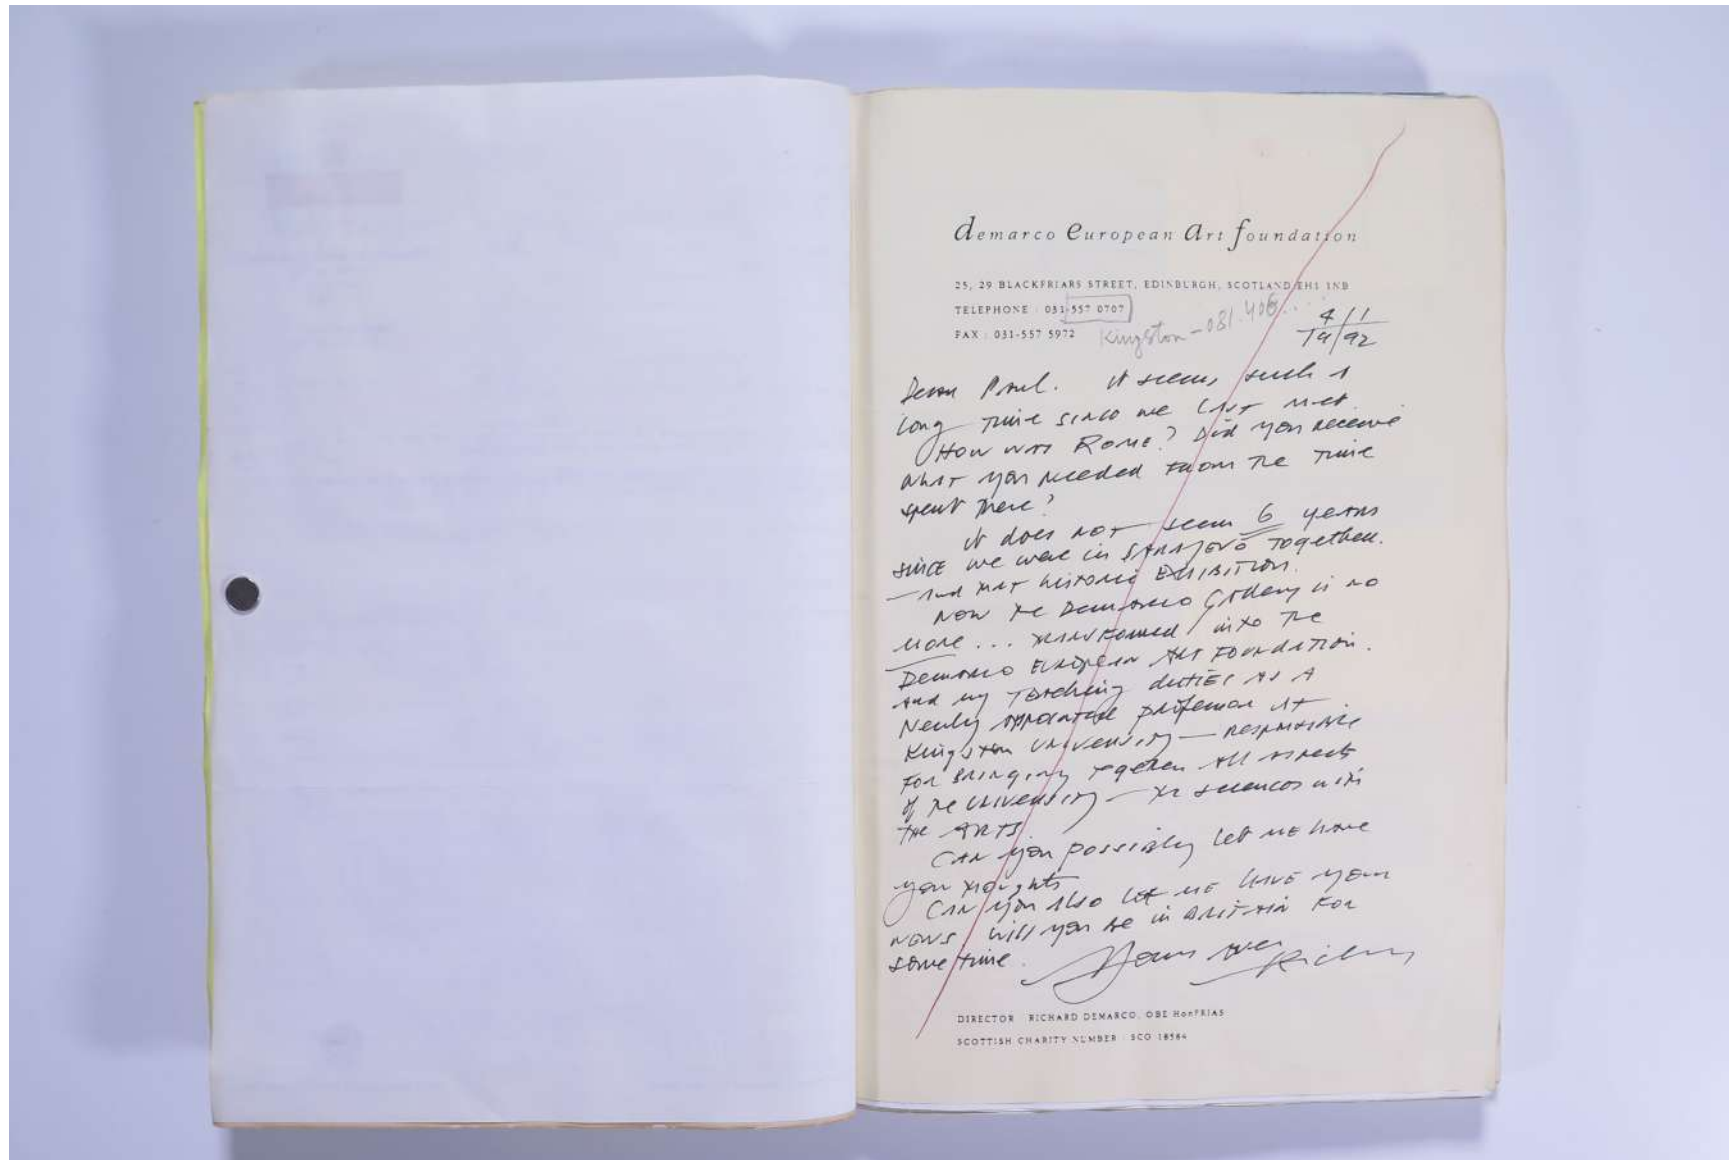 demarco European Art foundation
25, 29 BLACKFRIARS STREET, EDINBURGH, SCOTLAND EH1 1NB
TELEPHONE : 031-557 0707
FAX : 031-557 5972
Kingston - 081.406...
4/1
19/92
Dear Paul. It seems such a
long time since we last met.
How was Rome? Did you receive
what you needed from the time
spent there?
It does not seem 6 years
since we were in SARAJEVO together.
- and that historic EXHIBITION.
Now the Demarco Gallery is no
more ... transformed into the
Demarco European Art Foundation.
And my teaching duties as a
Newly appointed professor at
Kingston University - responsible
for bringing together all aspects
of the University - the sciences with
THE ARTS
Can you possibly let me have
your thoughts
Can you also let me have your
news. Will you be in Britain for
some time.
Yours ever
Richard
DIRECTOR RICHARD DEMARCO, OBE HonFRIAS
SCOTTISH CHARITY NUMBER : SCO 18584